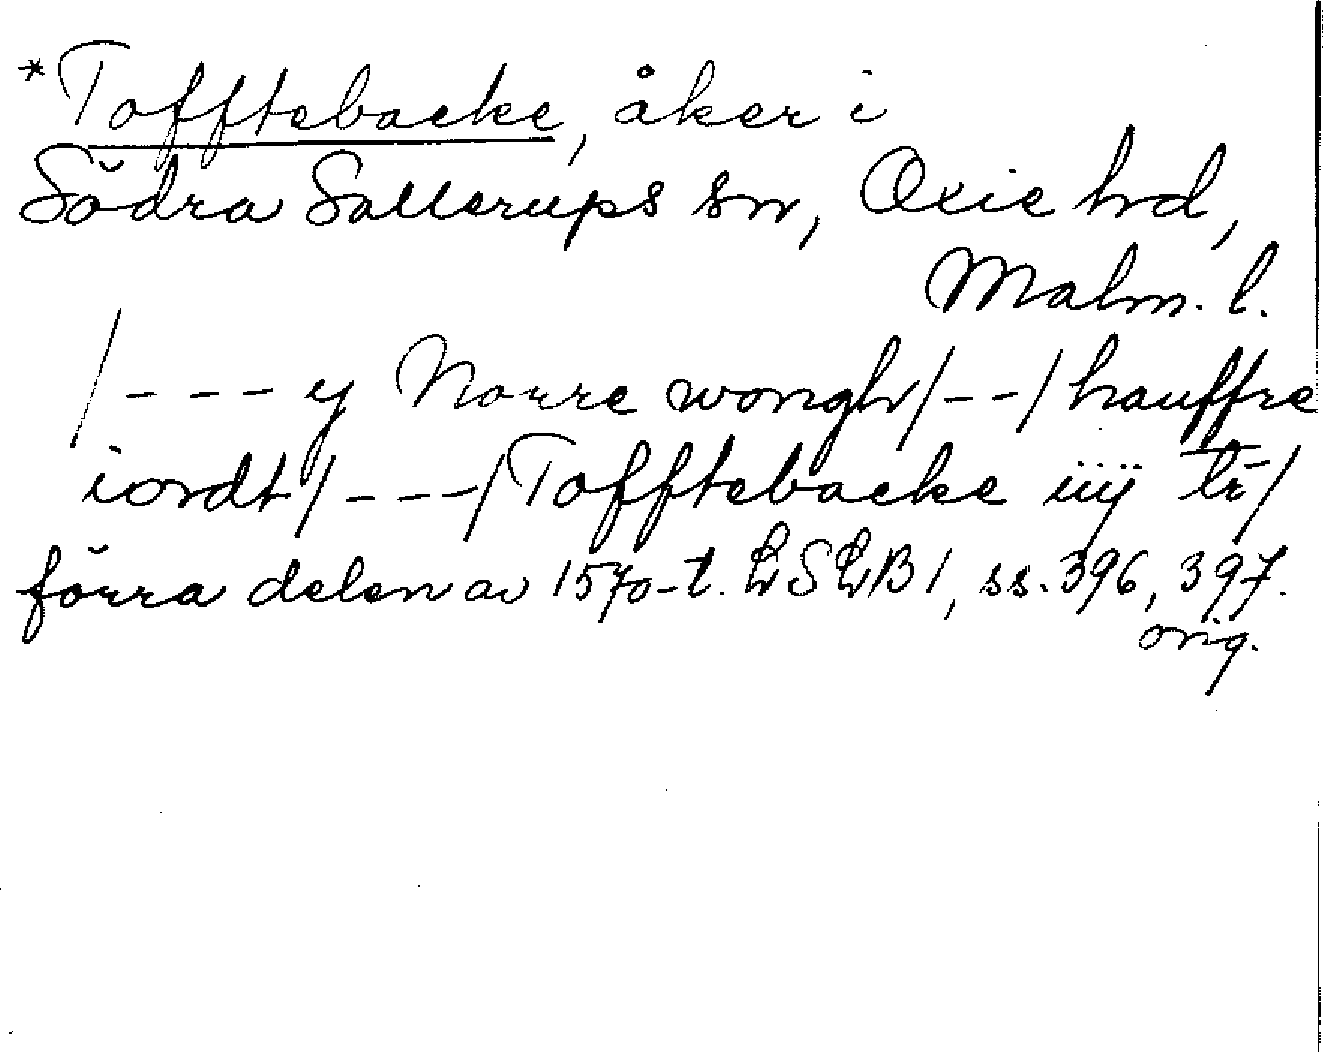 *Tofftebacke, åker i
Södra Sallerups sn, Oxie hd,
Malm. l.
/---y Norre wongh/--/hauffre
iordt/---/Tofftebacke iiij tr/
förra delen av 1570-t. LSLB 1, ss. 396, 397.
orig.